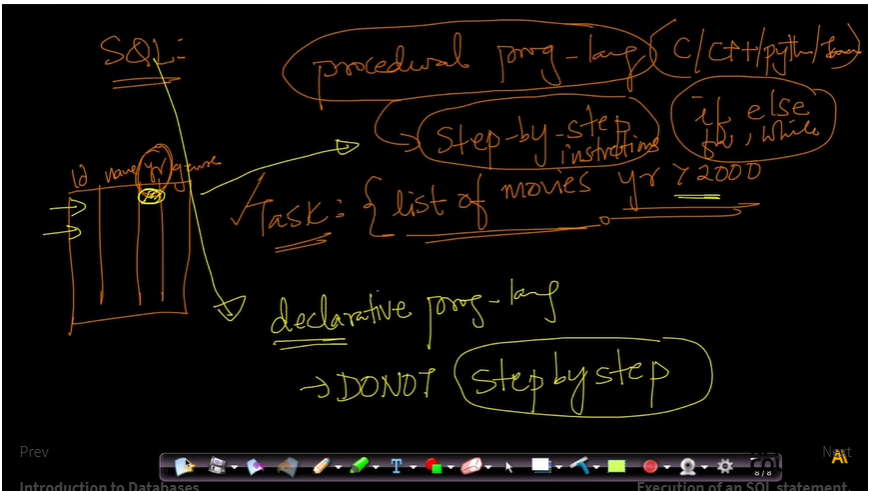 SQL:-
procedural prog-lang (C/C++/python/Java)
→ step-by-step instructions
if else
for, while
Id name yr genre
Task: {list of movies yr > 2000
declarative prog-lang
→ DONOT step by step
Prev
Next
8 / 8
Introduction to Databases
Execution of an SQL statement.